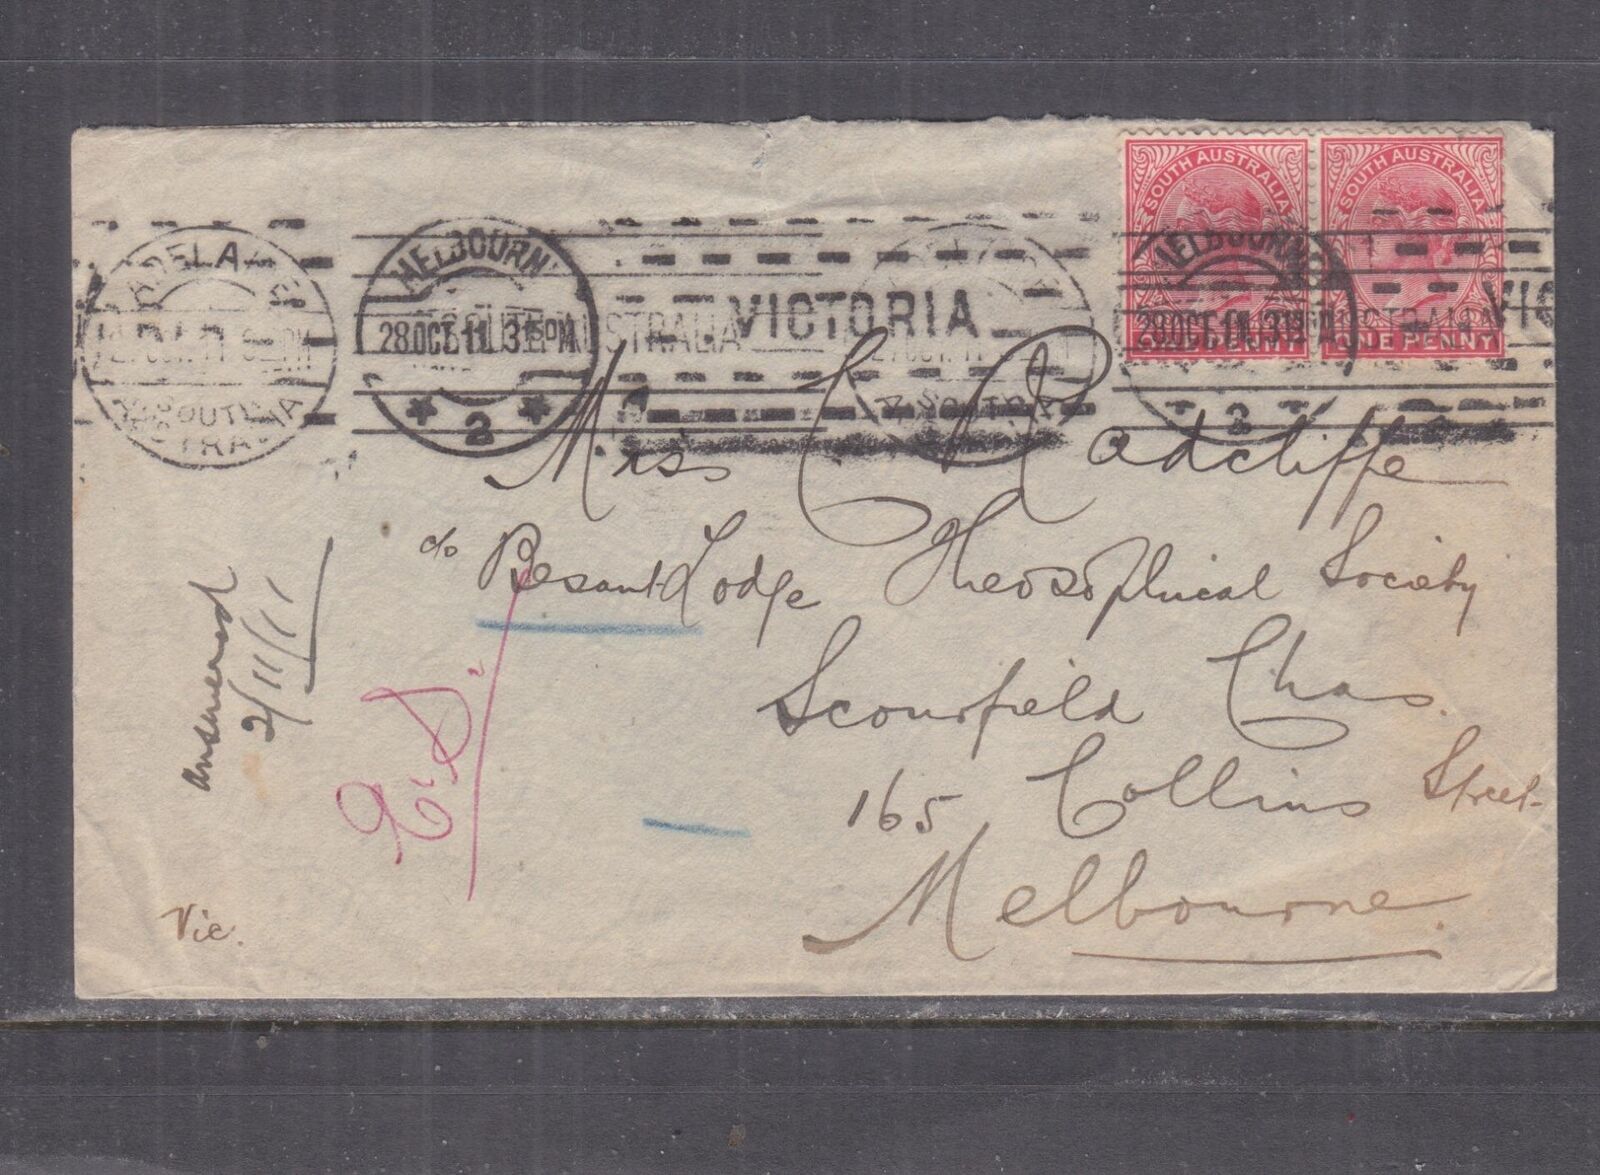 SOUTH AUSTRALIA
SOUTH AUSTRALIA
ONE PENNY
ONE PENNY
ADELAIDE
SOUTH
AUSTRALIA
MELBOURNE
28 OCT 11 3 15 PM
2
VICTORIA
SOUTH AUSTRALIA
MELBOURNE
28 OCT 11 3 15 PM
2
VIC
Miss C Radcliffe
c/o Besant Lodge Theosophical Society
Scourfield Chas.
165 Collins Street
Melbourne.
Vic.
answered
2/11/11